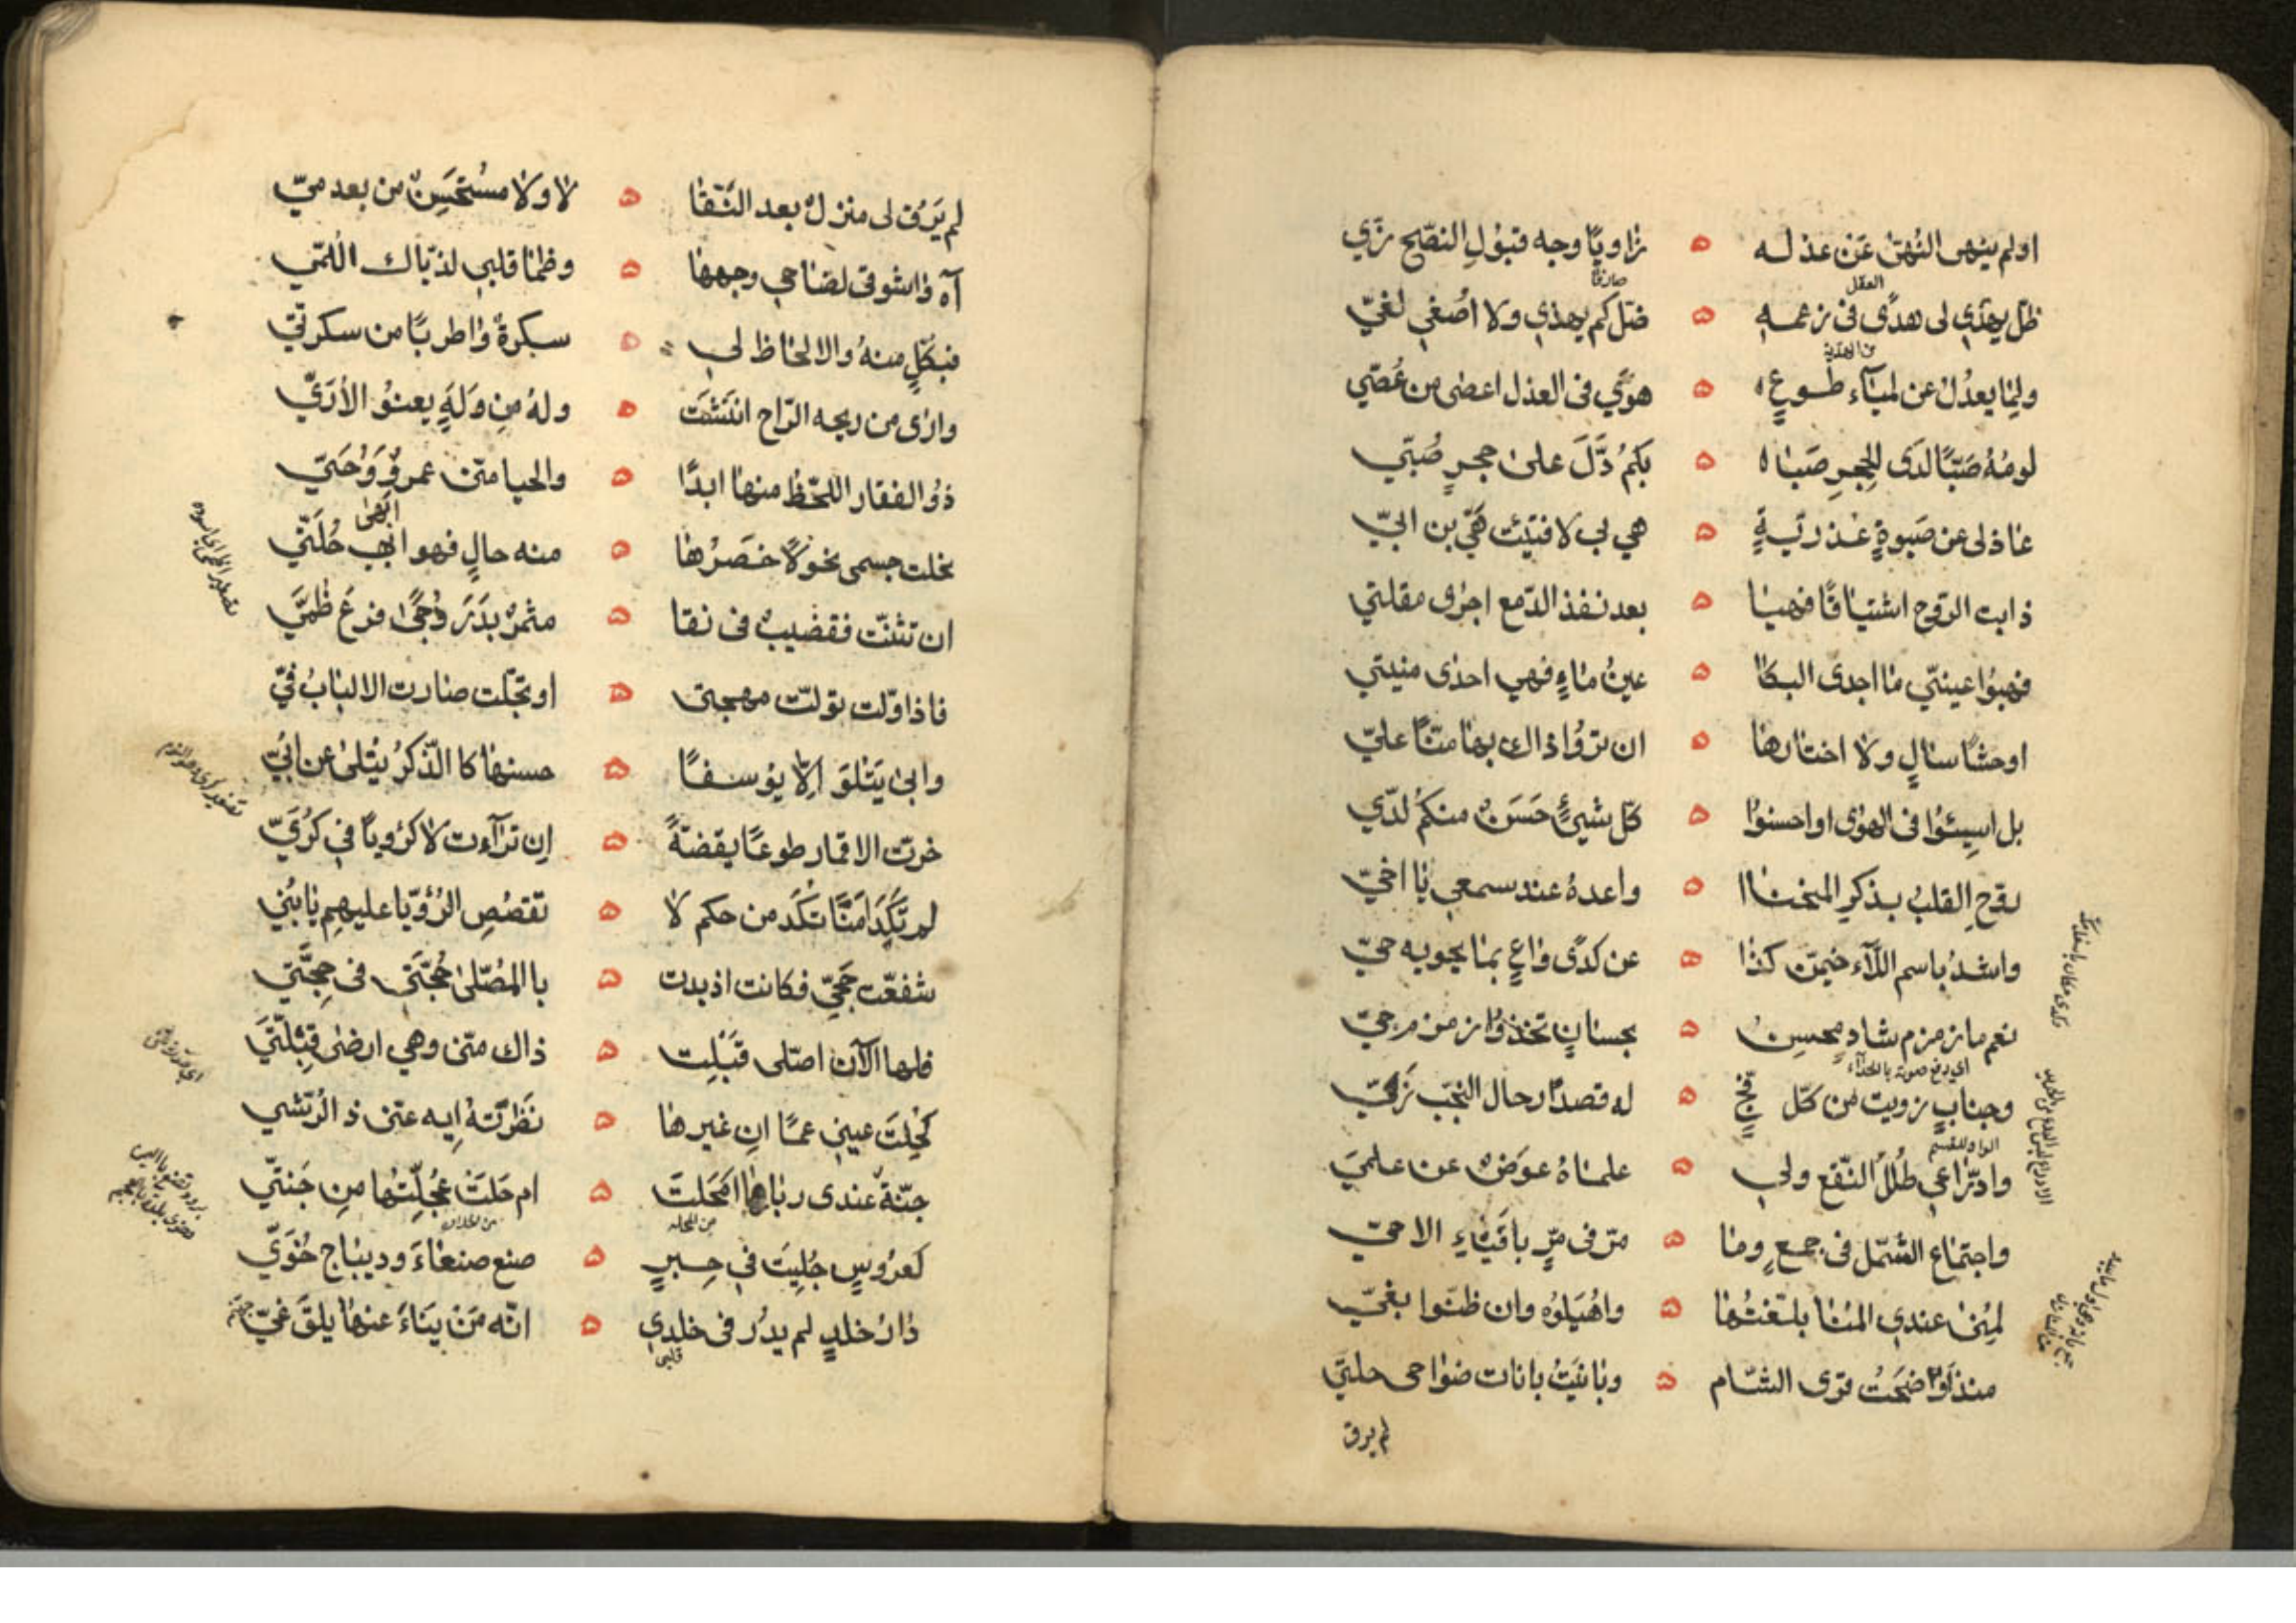 اولم ينهى النُهىٰ عَنْ عذله ه زاويًا وجه قبُولِ النصّح زَي
العقل
صارفًا
ظلّ يهدِي لى هدًى فى زعمه ه ضلّ كم يهذي ولا اُصغي لغيّ
من الهدية
ولِمَا يعذُل عن لمياء طوعِ ه هوًي فى العذل اعصٰى من عُصَيّ
لومُهُ صَبًّا لدَى الحِجرِ صَبٰا ه بكمُ دَلَّ علىٰ حجرٍ صُبَيّ
عاذلى عن صَبوةٍ عذريّةٍ ه هي بي لا فتئت هَيّ بن بيّ
ذابت الروّح اشتياقًا فهيا ه بعد نفذ الدّمع اجرٰى مقلتي
فهبُوا عينيّ ما اجدى البكا ه عينُ ماءٍ فهي احدٰى منيتي
اوحشًا سالٍ ولا اختارها ه ان تروُا ذاك بها منًّا عليّ
بل اسِيئوُا فى الهوٰى او احسنوُا ه كلّ شيئٍ حَسَنٌ منكم لدَي
روّحِ القلبُ بذكرِ المنحنا ه واعدهُ عند سمعي يا اخيّ
واشدُ باسم اللآء خيمّن كذا ه عن كدًى واعٍ بما يحويه حيّ
نعم ما زمزم شادٍ محسِنٌ ه بحسانٍ تخذوا زمزم جيّ
اي يرفع صوته بالحدآء
وجنابٍ زويت من كلّ فجّ ه له قصدًا رحال النجّب زَيّ
الواو للقسم
وادّراعي حُلَل النّقع ولي ه علماهُ عوَضٌ عن علميَ
واجتماع الشمّل فى جمعٍ وما ه مرّ فى مرٍّ بافَياءِ الاحيّ
لمِنىٰ عندي المُنٰا بلّغتُها ه واهُيَلوُه وان ظنّوا بغيّ
منذ اوضحَتُ قرى الشّام ه وباينَتُ بانات ضواحى حلتي
لم يرق
لم يَرُق لى منزلٌ بعد النَقا ه لا ولا مسُتحَسِنٌ من بعد ميّ
آه واشوقى لضاحي وجهها ه وظما قلبي لذيّاك اللمّي
فبكلٍّ منهُ والالحاظ لي ه سكرةٌ واطربًا من سكرتيّ
وارى من ريحه الرّاح انتشَت ه ولهُ مِن وَلَهٍ يعنوُ الأرَيّ
ذوُ الفقار اللحّظ منها ابدًا ه والحيا منّى عمروٌ وَحُيَيّ
نحلت جسمى نحولًا خصَرُها ه منه حالٍ فهو ابهي حُلَتّي
ابهىٰ
ان تثنّت فقضيبٌ فى نقا ه مثمرٌ بدَرَ دُجًى فرعَ ظُمَيَّ
فاذا ولّت تولّت مهجتى ه او تجلّت صارت الالبابُ فيّ
وابىٰ يَتلوَ اِلّا يوسفًا ه حسنها كا الذّكرُ يُتلىٰ عن اُبَيّ
خرّت الاقمار طوعًا يقضةً ه اِن ترآءت لا كرُوياً في كُرَيّ
لم تَكَد اَمَنًّا تكَد من حكم لا ه تقصُصِ الرُؤيا عليهِم يا بُنَي
شفعّت حَجّيّ فكانت اذ بدت ه با المُصّلىٰ حُجَّتى فى حِجَّتَي
فلها الآن اصّلى قبَلِت ه ذاك منّى وهي ارضىٰ قِبْلَتَيّ
كُحِلَت عيني عمًا ان غيرها ه نَظَرَتهُ اِيه عنّى ذا الرُشَي
جنّة عندى رباها امَحَلتَ ه ام حَلتَ عجُلِّتُها مِن جَنتيّ
من المحل
كعروُسٍ جُلِيَت في حِبرٍ ه صنع صنعاءَ وديباج خُوَيّ
دارُ خلدٍ لم يدُر فى خلدي ه انّه مَن يَناءَ عنها يلقَ غيّ
قلبي